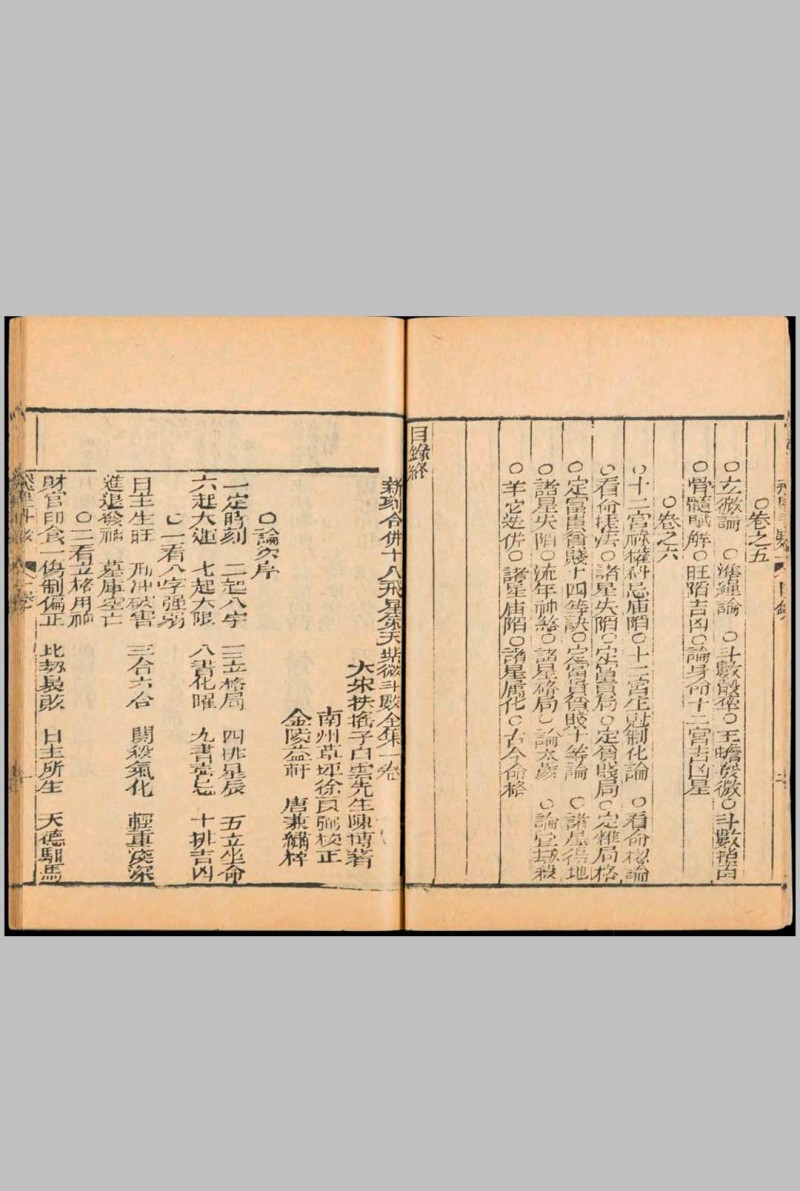 ○卷之五
○玄微論　○濟纏論　○斗數骰率○玉蟾發微○斗數指南
○骨髓賦解○旺陷吉凶○論身命十二宮吉凶星
○卷之六
○十二宮祿權科忌庙陷○十二宮生尅制化論　○看命總論
○看命捷法○諸星失陷○定富貴局○定貧賤局○定雜局格
○定富貴貧賤十四等訣○定富貴貧賤十等論　○諸星得地
○諸星失陷○流年神煞○諸星格局○論太歲　○論宜　殺
○羊它迭併○諸星庙陷○諸星屬化○古今命格
目錄終
新刻合併十八飛星策天紫微斗數全集一卷
大宋扶搖子白雲先生陳博著
南州草坪徐良弼校正
金陵益軒　唐兼綉梓
○論次序
一定時刻　二起八字　三立格局　四排星辰　五立坐命
六赶大運　七起大限　八書化曜　九書喜忌　十排吉凶
○一看八字强弱
日主生旺　刑冲破害　三合六合　閗殺氣化　輕重淺深
進退發神　墓庫空亡
○二看立格用神
財官印食一傷制偏正　比刼長敗　日主所生　天德馹馬